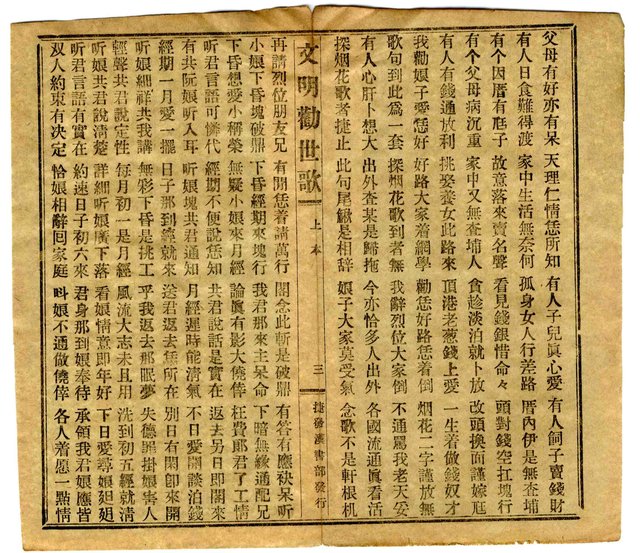 父母有好亦有呆 天理仁情恁所知 有人子兒眞心愛 有人飼子賣錢財
有人日食難得渡 家中生活無奈何 孤身女人行差路 厝內伊是無查埔
有个因厝有尫子 故意落來賣名聲 看見錢銀惜命々 頭對錢空扛塊行
有个父母病沉重 家中又無查埔人 貪趁淡泊就卜放 改頭換面謹嫁尪
有人有錢通放利 挑娶養女此路來 頂港老葱錢上愛 一生着做錢奴才
我勸娘子愛恁好 好路大家着綱學 勸恁好路恁着倒 烟花二字謹放無
歌句到此爲一套 探烟花歌到者無 我辭烈位大家倒 不通罵我老天妥
有人心肝卜想大 出外查某是歸拖 今亦恰多人出外 各國流通眞看活
探烟花歌者捷止 此句尾鰍是相辞 娘子大家莫受氣 念歌不是軒根机
文明勸世歌 上本 三 捷發漢書部發行
再請烈位朋友兄 有閒恁着請萬行 閣念此斬是破鼎 有答有應袂呆听
小娘下昏塊破鼎 下昏經期來塊行 我君那來主呆命 下暗無緣通配兄
下昏想愛小稱榮 無疑小娘來月經 論眞有影大僥倖 枉費郎君了工情
听君言語可憐代 經期不便說恁知 共君說話是實在 返去另日即閣來
有共阮娘听入耳 听娘塊共君通知 月經遲時能清氣 不日愛閣談泊錢
經期一月愛一擺 日子那到經就來 送君返去恁所在 別日有閑卽來開
听娘細祥共我講 無彩下昏是挑工 乎我返去那眠夢 失德罪掛娘害人
輕聲共君說定性 每月初一是月經 風流大志未且用 洗到初五經就清
听娘共君說清楚 詳細听娘廣下落 看娘情意即年好 下日愛尋娘𨑨迌
听君言語有實在 約速日子初六來 君身那到娘奉待 承領我君娘應皆
双人約束有決定 恰娘相辭回家庭 呌娘不通做僥倖 各人着愿一點情